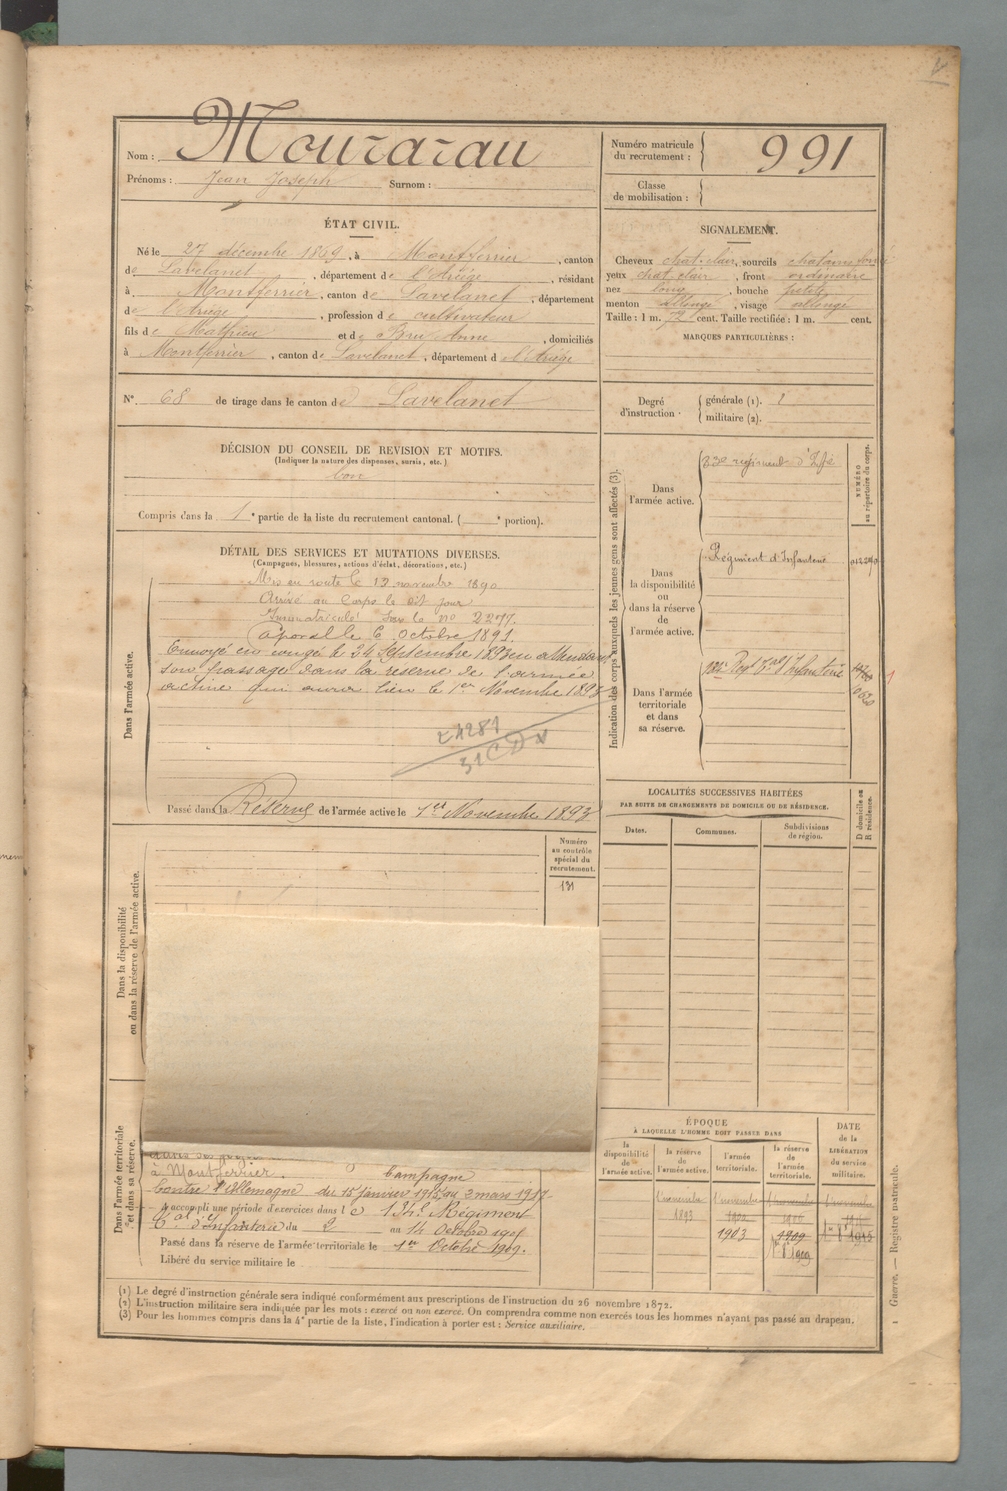 Nom : Mourarau
Prénoms : Jean Joseph Surnom :
Numéro matricule du recrutement : 991
Classe de mobilisation :
ÉTAT CIVIL.
Né le 27 décembre 1869, à Montferrier, canton
de Lavelanet, département de l'Ariège, résidant
à Montferrier, canton de Lavelanet, département
de l'Ariège, profession de cultivateur
fils de Mathieu et de Bru Anne, domiciliés
à Montferrier, canton de Lavelanet, département d l'Ariége
N° 68 de tirage dans le canton de Lavelanet
SIGNALEMENT.
Cheveux chat. clair, sourcils chatains
yeux chat. clair, front ordinaire
nez long, bouche petite
menton allongé, visage allongé
Taille : 1 m. 72 cent. Taille rectifiée : 1 m. cent.
MARQUES PARTICULIÈRES :
Degré d'instruction. générale (1). militaire (2).
DÉCISION DU CONSEIL DE REVISION ET MOTIFS.
(Indiquer la nature des dispenses, sursis, etc.)
bon
Compris dans la 1e partie de la liste du recrutement cantonal. ( e portion).
DÉTAIL DES SERVICES ET MUTATIONS DIVERSES.
(Campagnes, blessures, actions d'éclat, décorations, etc.)
Dans l'armée active.
Mis en route le 12 novembre 1890
Arrivé au Corps le dit jour
Immatriculé sous le no 2277.
Caporal le 6 Octobre 1891.
Envoyé en congé le 24 Septembre 1893 en attendant
son passage dans la réserve de l'armée
active qui aura lieu le 1er Novembre 1893
Passé dans la Réserve de l'armée active le 1er Novembre 1893
Indication des corps auxquels les jeunes gens sont affectés (3).
NUMÉRO au répertoire du corps.
Dans l'armée active.
régiment d'Infie
Dans la disponibilité ou dans la réserve de l'armée active.
Régiment d'Infanterie
Dans l'armée territoriale et dans sa réserve.
LOCALITÉS SUCCESSIVES HABITÉES
PAR SUITE DE CHANGEMENTS DE DOMICILE OU DE RÉSIDENCE.
Dates. Communes. Subdivisions de région. D domicile ou R résidence.
Dans la disponibilité ou dans la réserve de l'armée active.
Numéro au contrôle spécial du recrutement.
131
Dans l'armée territoriale et dans sa réserve.
à Montferrier. Campagne
Contre l'Allemagne du 15 janvier 1915 au 3 mars 1917
A accompli une période d'exercices dans le Régiment
d'Infanterie du 2 au 14 Octobre
Passé dans la réserve de l'armée territoriale le 1er Octobre 1909.
Libéré du service militaire le
ÉPOQUE
À LAQUELLE L'HOMME DOIT PASSER DANS
la disponibilité de l'armée active.
la réserve de l'armée active.
l'armée territoriale.
la réserve de l'armée territoriale.
DATE de la LIBÉRATION du service militaire.
1 novembre 1893
1903
1909
1915
(1) Le degré d'instruction générale sera indiqué conformément aux prescriptions de l'instruction du 26 novembre 1872.
(2) L'instruction militaire sera indiquée par les mots : exercé ou non exercé. On comprendra comme non exercés tous les hommes n'ayant pas passé au drapeau.
(3) Pour les hommes compris dans la 4e partie de la liste, l'indication à porter est : Service auxiliaire.
Guerre. — Registre matricule.